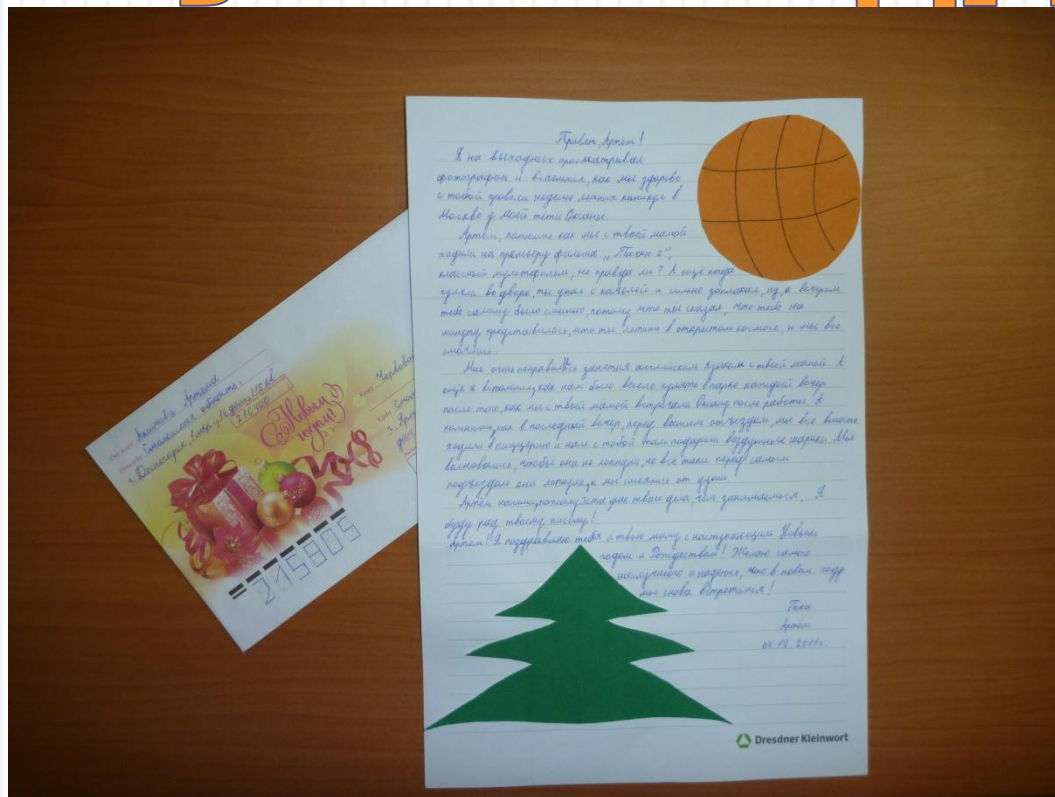 Привет, Артём!
Я на выходных просматривал
фотографии и вспомнил, как мы здорово
с тобой провели неделю летних каникул в
Москве у моей тёти Оксаны.
Артём, помнишь как мы с твоей мамой
ходили на премьеру фильма „Тачки 2",
классный мультфильм, не правда ли? А ещё когда
гуляли во дворе, ты упал с качелей и сильно заплакал, а вечером
тебе самому было смешно, потому что ты сказал, что тебе на
минуту представилось, что ты летишь в открытом космосе, и мы все
смеялись.
Мне очень понравились занятия английским языком с твоей мамой. А
ещё я вспомнил, как нам было весело гулять в парке каждый вечер
после того, как мы с твоей мамой встречали Оксану после работы. Я
помню, как в последний вечер, перед вашим отъездом, мы все вместе
ходили в пиццерию и нам с тобой там подарили воздушные шарики. Мы
волновались, чтобы они не лопнули, но всё таки перед самым
подъездом они лопнули, и мы смеялись от души.
Артём напиши, пожалуйста, как твои дела, чем занимаешься. Я
буду рад твоему письму!
Артём! Я поздравляю тебя и твою маму с наступающим Новым
годом и Рождеством! Желаю самого
наилучшего и надеюсь, что в новом году
мы снова встретимся!
Пока
Артём
12.2011г.
Dresdner Kleinwort
Акимова Артёма
Смоленская область,
г. Десногорск, 2 мкр.,
216400
С Новым
годом!
215805